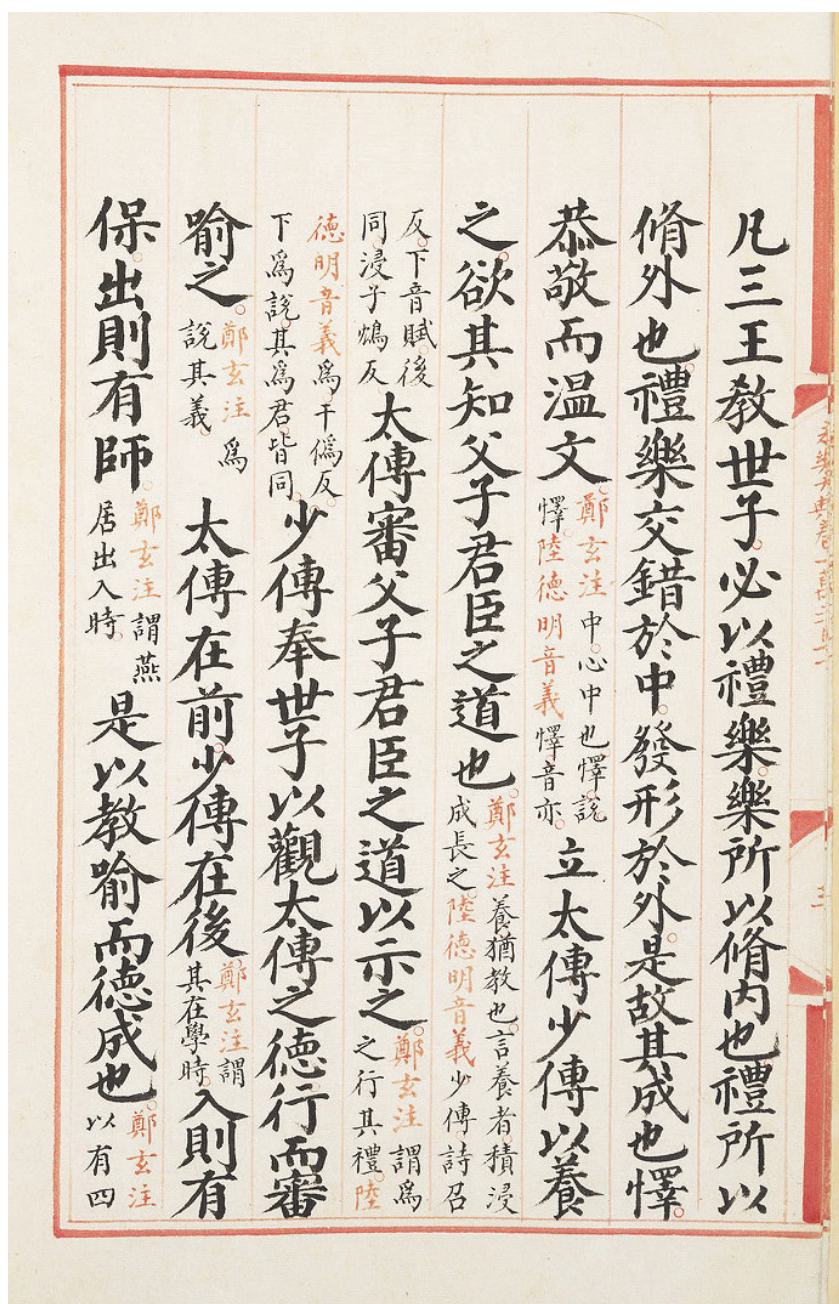 凡三王教世子必以禮樂樂所以脩内也禮所以
脩外也禮樂交錯於中發形於外是故其成也懌
恭敬而温文鄭玄注中心中也懌說懌陸德明音義懌音亦立太傅少傅以養
之欲其知父子君臣之道也鄭玄注養猶教也言養者積浸成長之陸德明音義少傅詩召
反下音賦後同浸子鴆反太傅審父子君臣之道以示之鄭玄注謂爲之行其禮陸
德明音義爲于僞反下爲說其爲君皆同少傅奉世子以觀太傅之德行而審
喻之鄭玄注爲說其義太傅在前少傅在後鄭玄注謂其在學時入則有
保出則有師鄭玄注謂燕居出入時是以教喻而德成也鄭玄注以有四